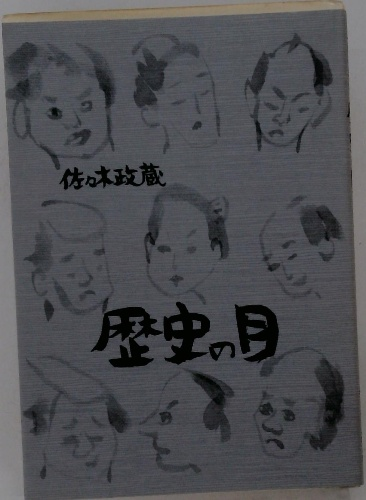 佐々木政蔵
歴史の目